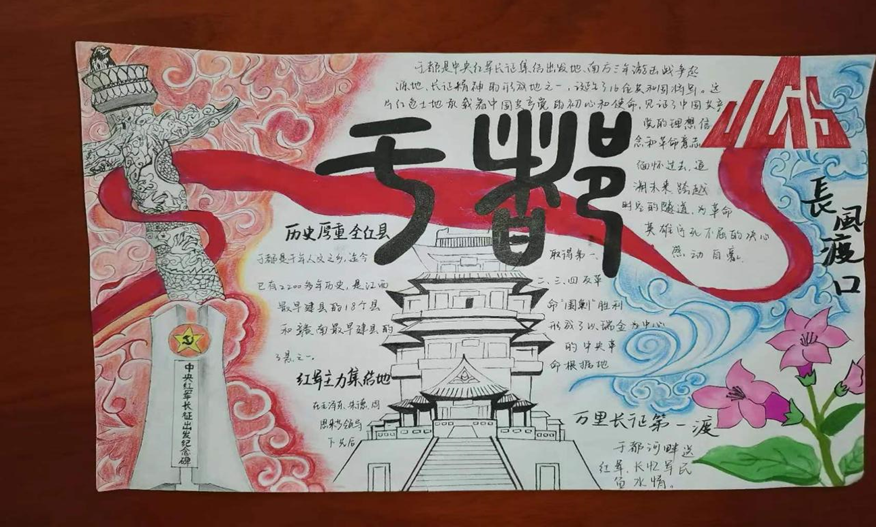 于都是中央红军长征集结出发地、南方三年游击战争起
源地、长征精神的形成地之一,诞生了16位共和国将军。这
片红色土地承载着中国共产党的初心和使命,见证了中国共产
党的理想信
念和革命意志
缅怀过去、追
溯未来跨越
时空的隧道,为革命
英雄们
不屈的决心
感动
于都
長風渡口
历史厚重全红县
于都是千年人文之乡,迄今
已有2200多年历史,是江西
最早建县的18个县
和赣南最早建县的
3县之一。
红军主力集结地
在毛泽东、朱德、周
恩来等领导
下先后
取得第一、
二、三、四反革
命"围剿"胜利
形成了以瑞金为中心
的中央革
命根据地
万里长征第一渡
于都河畔送
红军、长忆军民
鱼水情。
中央红军长征出发纪念碑